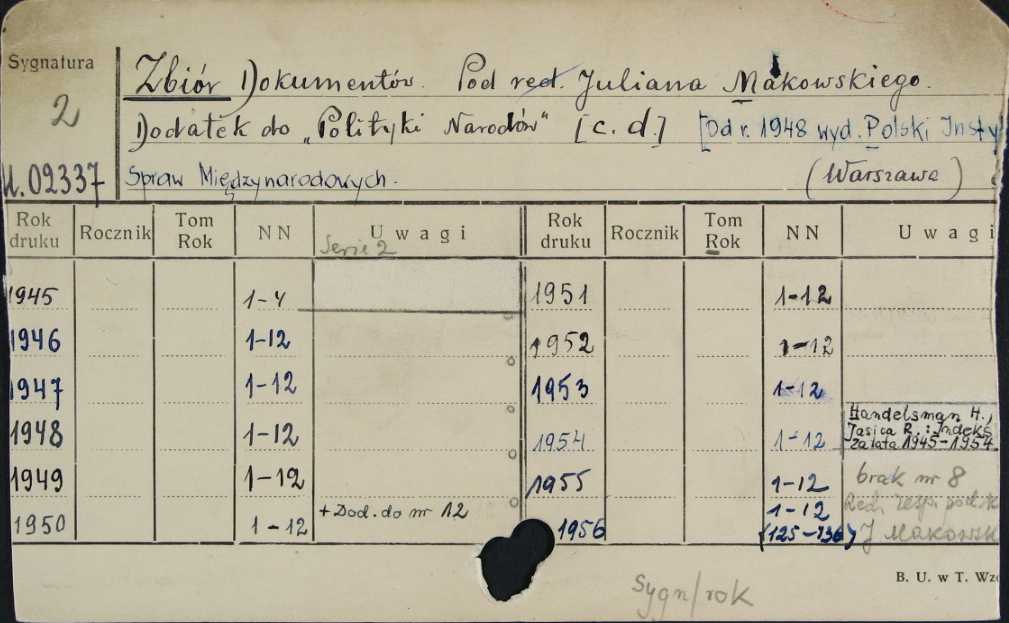 Sygnatura
2
Zbiór Dokumentów. Pod red. Juliana Makowskiego.
Dodatek do „Polityki Narodów" [c. d.] [Od r. 1948 wyd. Polski Insty
U.02337
Spraw Międzynarodowych. (Warszawa)
Rok druku Rocznik Tom Rok NN Uwagi Rok druku Rocznik Tom Rok NN Uwagi
Serie 2
1945 1-4 1951 1-12
1946 1-12 1952 1-12
1947 1-12 1953 1-12
1948 1-12 1954 1-12 Handelsman H.,
Jasica R.: Indeks
za lata 1945-1954
1949 1-12 1955 1-12 brak nr 8
1950 1-12 +Dod. do nr 12 1956 1-12
(125-136) J Makowsk
Sygn/rok
B. U. w T. Wzo